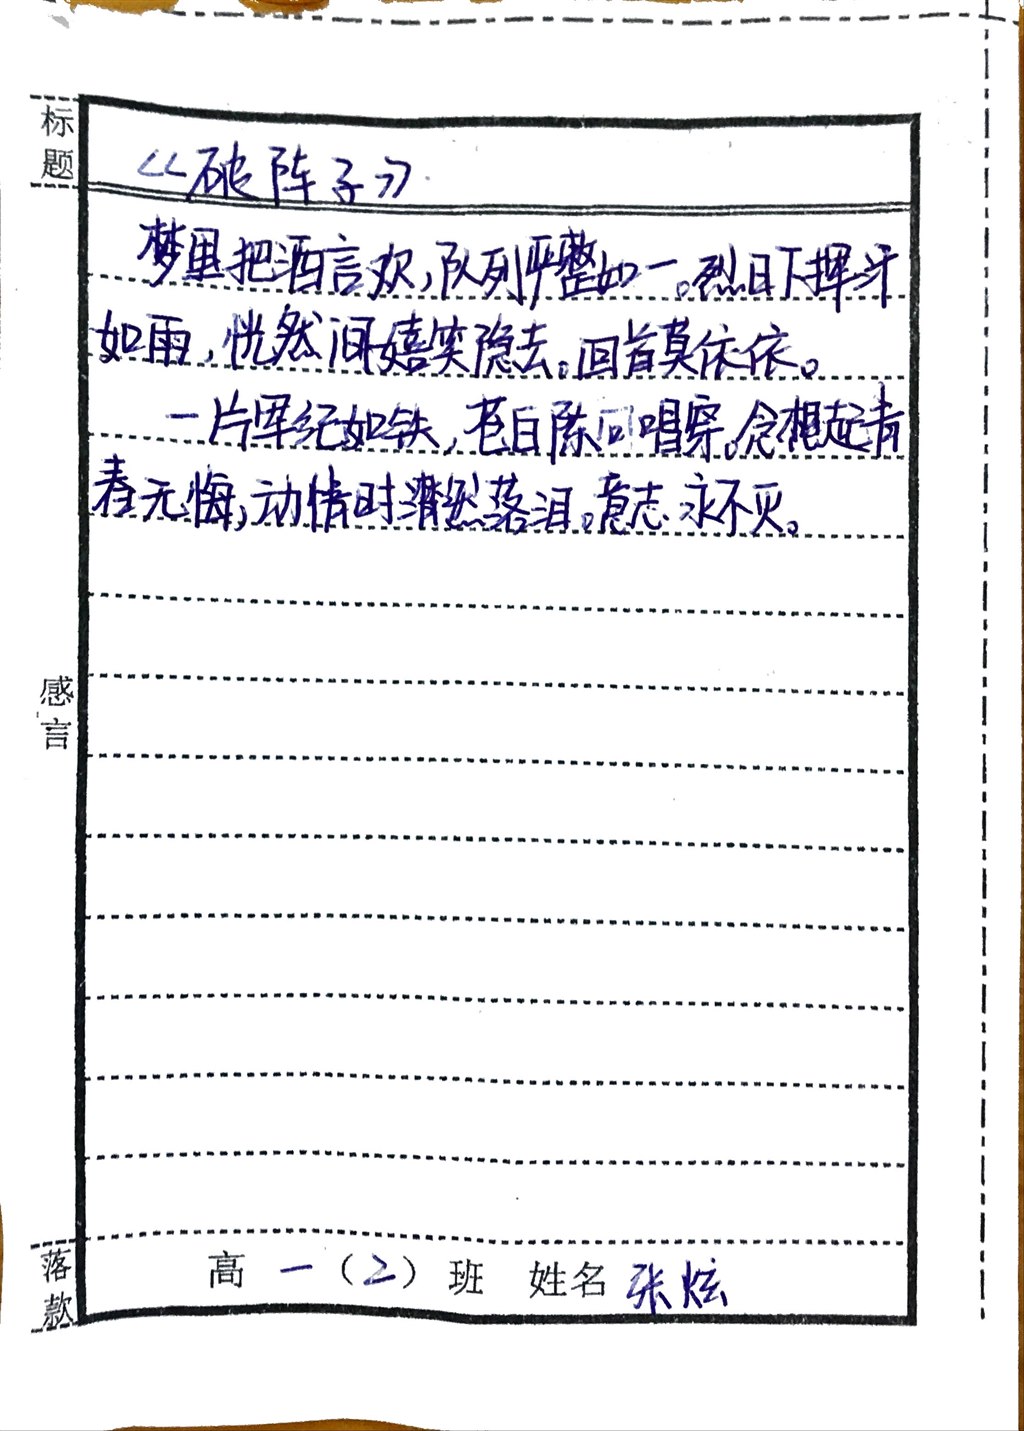 标题
《破阵子》
梦里把酒言欢,队列严整如一。烈日下挥汗
如雨,恍然间嬉笑隐去。回首莫依依。
一片军纪如铁,苍白陈词唱穿。念想起青
春无悔,动情时潸然落泪。意志永不灭。
感言
落款
高一(2)班 姓名 张炫